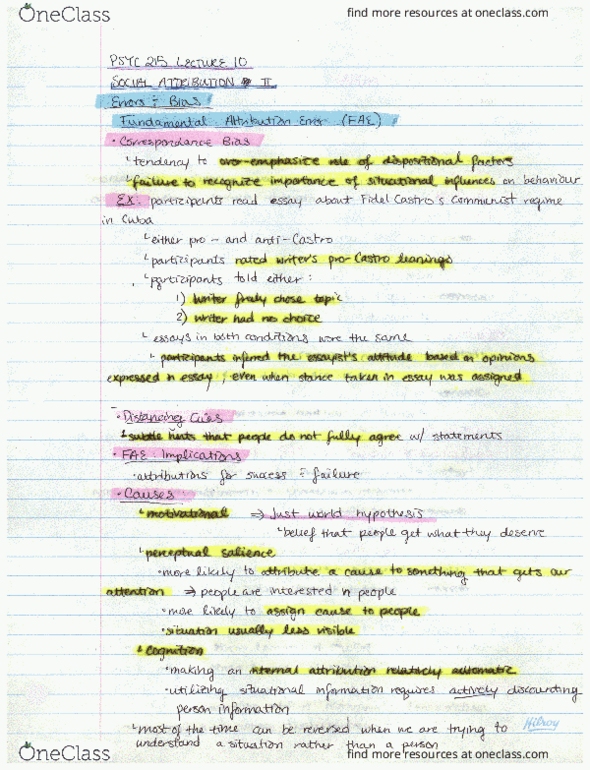 OneClass
find more resources at oneclass.com
PSYC 215 LECTURE 10
SOCIAL ATTRIBUTION II
Errors & Bias
Fundamental Attribution Error (FAE)
• Correspondance Bias
tendency to over-emphasize role of dispositional factors
failure to recognize importance of situational influences on behaviour
EX. participants read essay about Fidel Castro's Communist regime
in Cuba
either pro- and anti-Castro
participants rated writer's pro-Castro leanings
participants told either:
1) writer freely chose topic
2) writer had no choice
essays in both conditions were the same
participants inferred the essayist's attitude based on opinions
expressed in essay, even when stance taken in essay was assigned
• Distancing Cues
subtle hints that people do not fully agree w/ statements
• FAE: Implications
• attributions for success & failure
• Causes
motivational ⇒ Just world hypothesis
belief that people get what they deserve
perceptual salience
• more likely to attribute a cause to something that gets our
attention ⇒ people are interested in people
• more likely to assign cause to people
• situation usually less visible
cognition
• making an internal attribution relatively automatic
• utilizing situational information requires actively discounting
person information
most of the time can be reversed when we are trying to
Hilroy
understand a situation rather than a person
OneClass
find more resources at oneclass.com